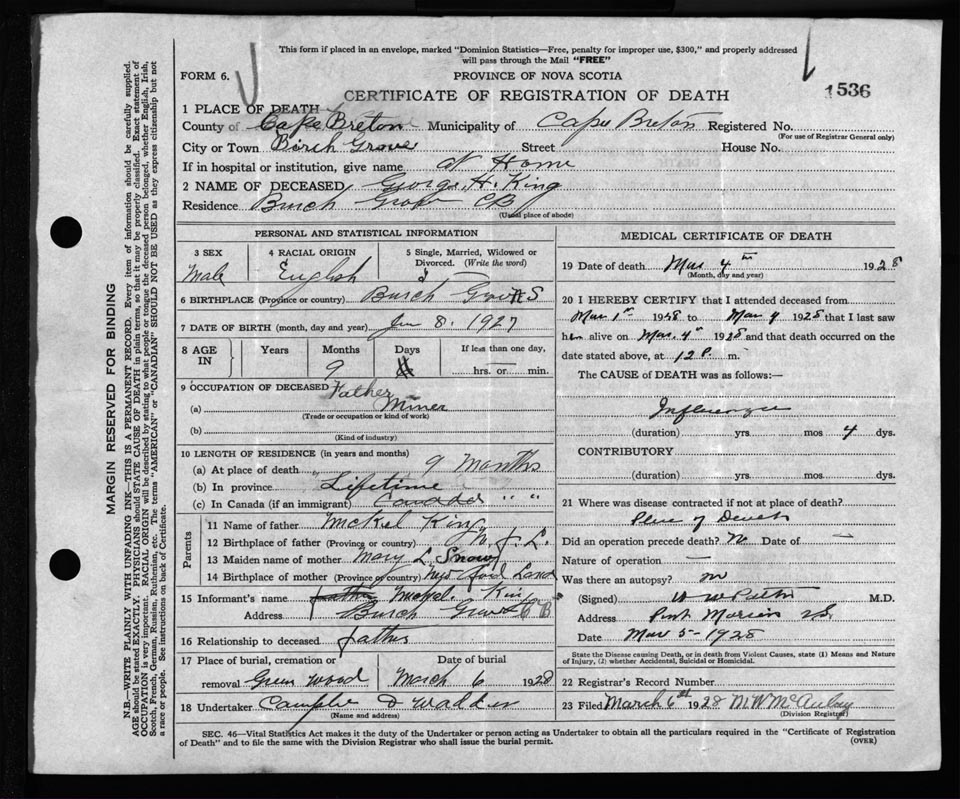 This form if placed in an envelope, marked "Dominion Statistics—Free, penalty for improper use, $300," and properly addressed
will pass through the Mail "FREE"
FORM 6.
PROVINCE OF NOVA SCOTIA
CERTIFICATE OF REGISTRATION OF DEATH
1536
1 PLACE OF DEATH
County of Cape Breton Municipality of Cape Breton Registered No.
(For use of Registrar General only)
City or Town Birch Grove Street House No.
If in hospital or institution, give name at Home
2 NAME OF DECEASED George H. King
Residence Burch Grove CB
(Usual place of abode)
PERSONAL AND STATISTICAL INFORMATION
3 SEX 4 RACIAL ORIGIN 5 Single, Married, Widowed or
Divorced. (Write the word)
Male English S
6 BIRTHPLACE (Province or country) Burch Grove NS
7 DATE OF BIRTH (month, day and year) 8. 1927
8 AGE IN Years Months Days If less than one day,
9 hrs. or min.
9 OCCUPATION OF DECEASED Father
(a) Miner
(Trade or occupation or kind of work)
(b)
(Kind of industry)
10 LENGTH OF RESIDENCE (in years and months)
(a) At place of death 9 Months
(b) In province Lifetime
(c) In Canada (if an immigrant) Canada " "
Parents
11 Name of father Mickel King
12 Birthplace of father (Province or country) N. f. L.
13 Maiden name of mother Mary L Snow
14 Birthplace of mother (Province or country) New Foundland
15 Informant's name father Mickel King
Address Burch Grove CB
16 Relationship to deceased father
17 Place of burial, cremation or Date of burial
removal Green Wood March 6 1928
18 Undertaker
(Name and address)
MEDICAL CERTIFICATE OF DEATH
19 Date of death Mar 4th 1928
(Month, day and year)
20 I HEREBY CERTIFY that I attended deceased from
Mar 1st 1928 to Mar 4 1928 that I last saw
him alive on Mar. 4th 1928 and that death occurred on the
date stated above, at 12 P. m.
The CAUSE of DEATH was as follows:—
Influenza
(duration) yrs. mos 4 dys.
CONTRIBUTORY
(duration) yrs. mos. dys.
21 Where was disease contracted if not at place of death?
Place of Death
Did an operation precede death? No Date of —
Nature of operation —
Was there an autopsy? no
(Signed) M.D.
Address Port Morien NS.
Date Mar 5 - 1928
State the Disease causing Death, or in death from Violent Causes, state (1) Means and Nature
of Injury, (2) whether Accidental, Suicidal or Homicidal.
22 Registrar's Record Number
23 Filed March 6th 1928 M. W McAulay
(Division Registrar)
SEC. 46—Vital Statistics Act makes it the duty of the Undertaker or person acting as Undertaker to obtain all the particulars required in the "Certificate of Registration
of Death" and to file the same with the Division Registrar who shall issue the burial permit.
(OVER)
MARGIN RESERVED FOR BINDING
N.B.—WRITE PLAINLY WITH UNFADING INK—THIS IS A PERMANENT RECORD. Every item of information should be carefully supplied.
AGE should be stated EXACTLY. PHYSICIANS should STATE CAUSE OF DEATH in plain terms, so that it may be properly classified. Exact statement of
OCCUPATION is very important. RACIAL ORIGIN will be described by stating to what people or tongue the deceased person belonged, whether English, Irish,
Scotch, French, German, Russian, Ruthenian, etc. The terms "AMERICAN" or "CANADIAN" SHOULD NOT BE USED as they express citizenship but not
a race or people. See instructions on back of Certificate.